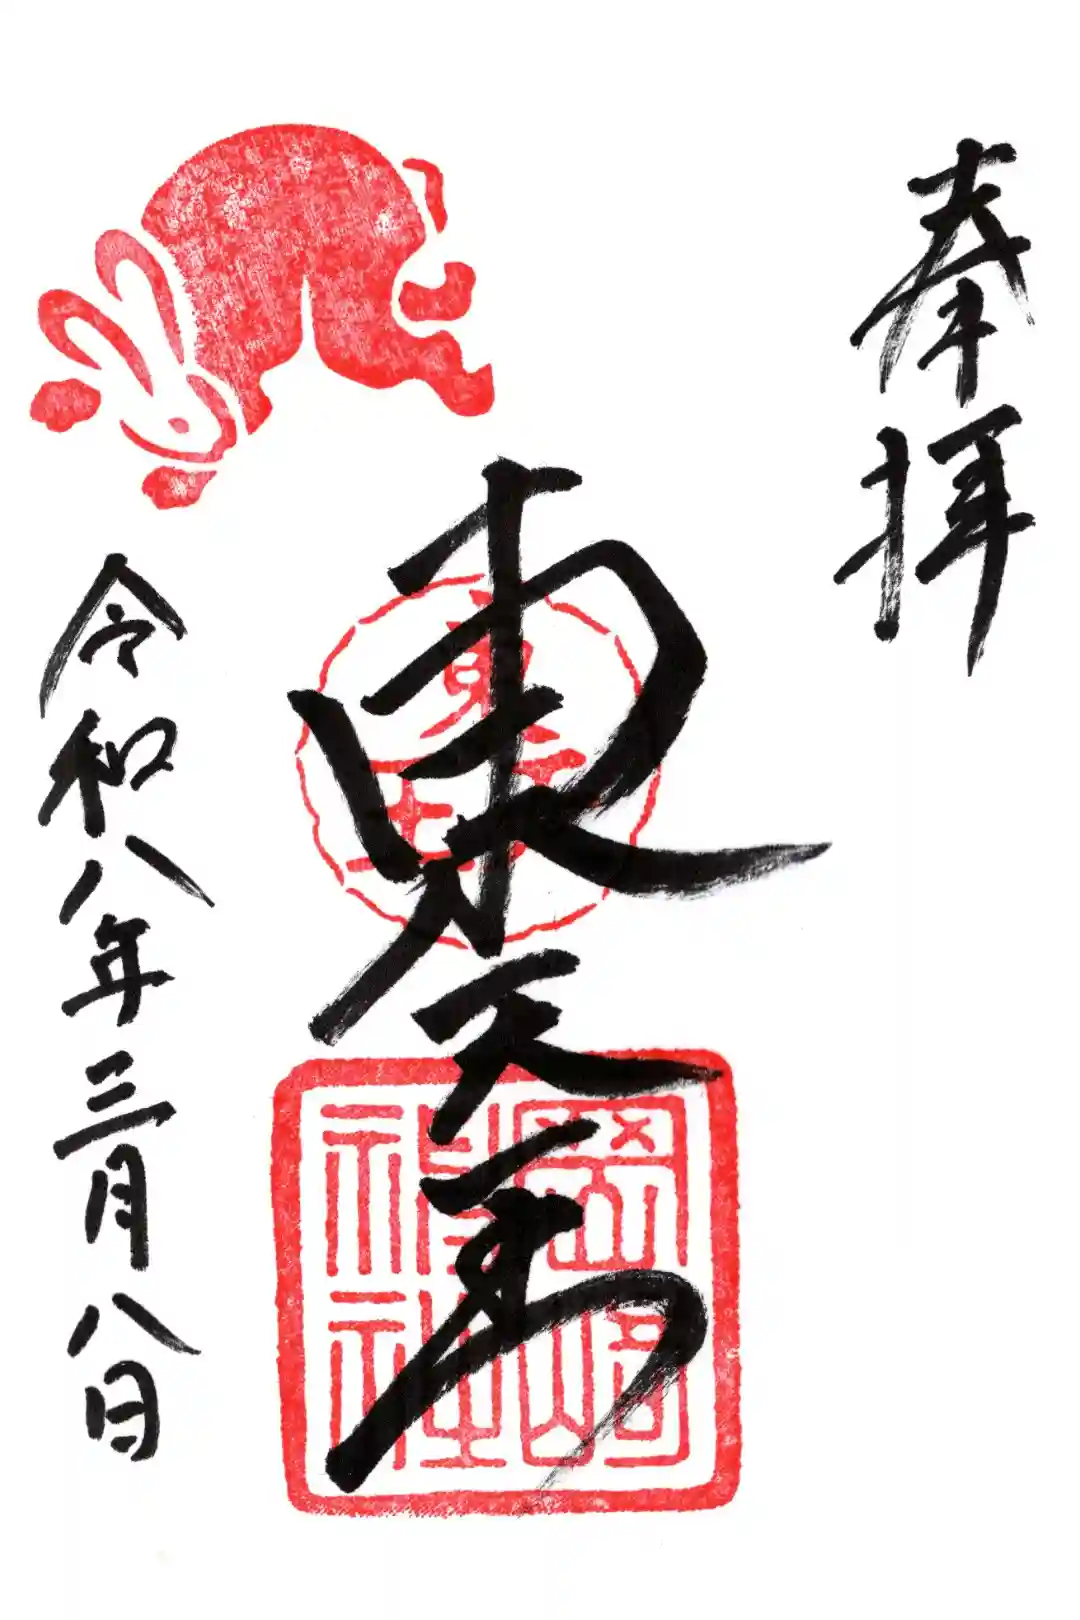 奉拝
東天王
岡崎神社
令和八年三月八日